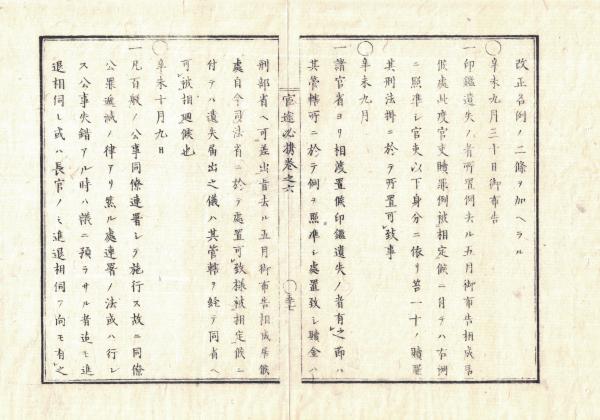 改正名例ノ二條ヲ加ヘラル
〇辛未九月三十日御布告
一印鑑遺失ノ者所置例去ル五月御布告相成居
候處此度官吏贖罪例被相定候ニ付テハ右例
ニ照準シ官吏以下身分ニ依リ笞一十ノ贖罪
其刑法掛ニ於テ所置可致事
〇辛未九月
一諸官省ヨリ相渡置候印鑑遺失ノ者有之節ハ
其管轄所ニ於テ例ヲ照準シ處置致シ贖金ハ
官途必携巻之六
〇
刑部省ヘ可差出旨去ル五月御布告相成居候
處自今司法省ニ於テ處置可致様被相定候ニ
付テハ遺失届出之儀ハ其管轄ヲ経テ同省ヘ
可被相廻候也
〇辛未十月九日
一凡百般ノ公事同僚連署シテ施行ス故ニ同僚
公罪遞減ノ律アリ然ル處連署ノ法或ハ行レ
ス公事失錯アル時ハ議ニ預ラサル者迄モ進
退相伺シ或ハ長官ノミ進退相伺フ向モ有之